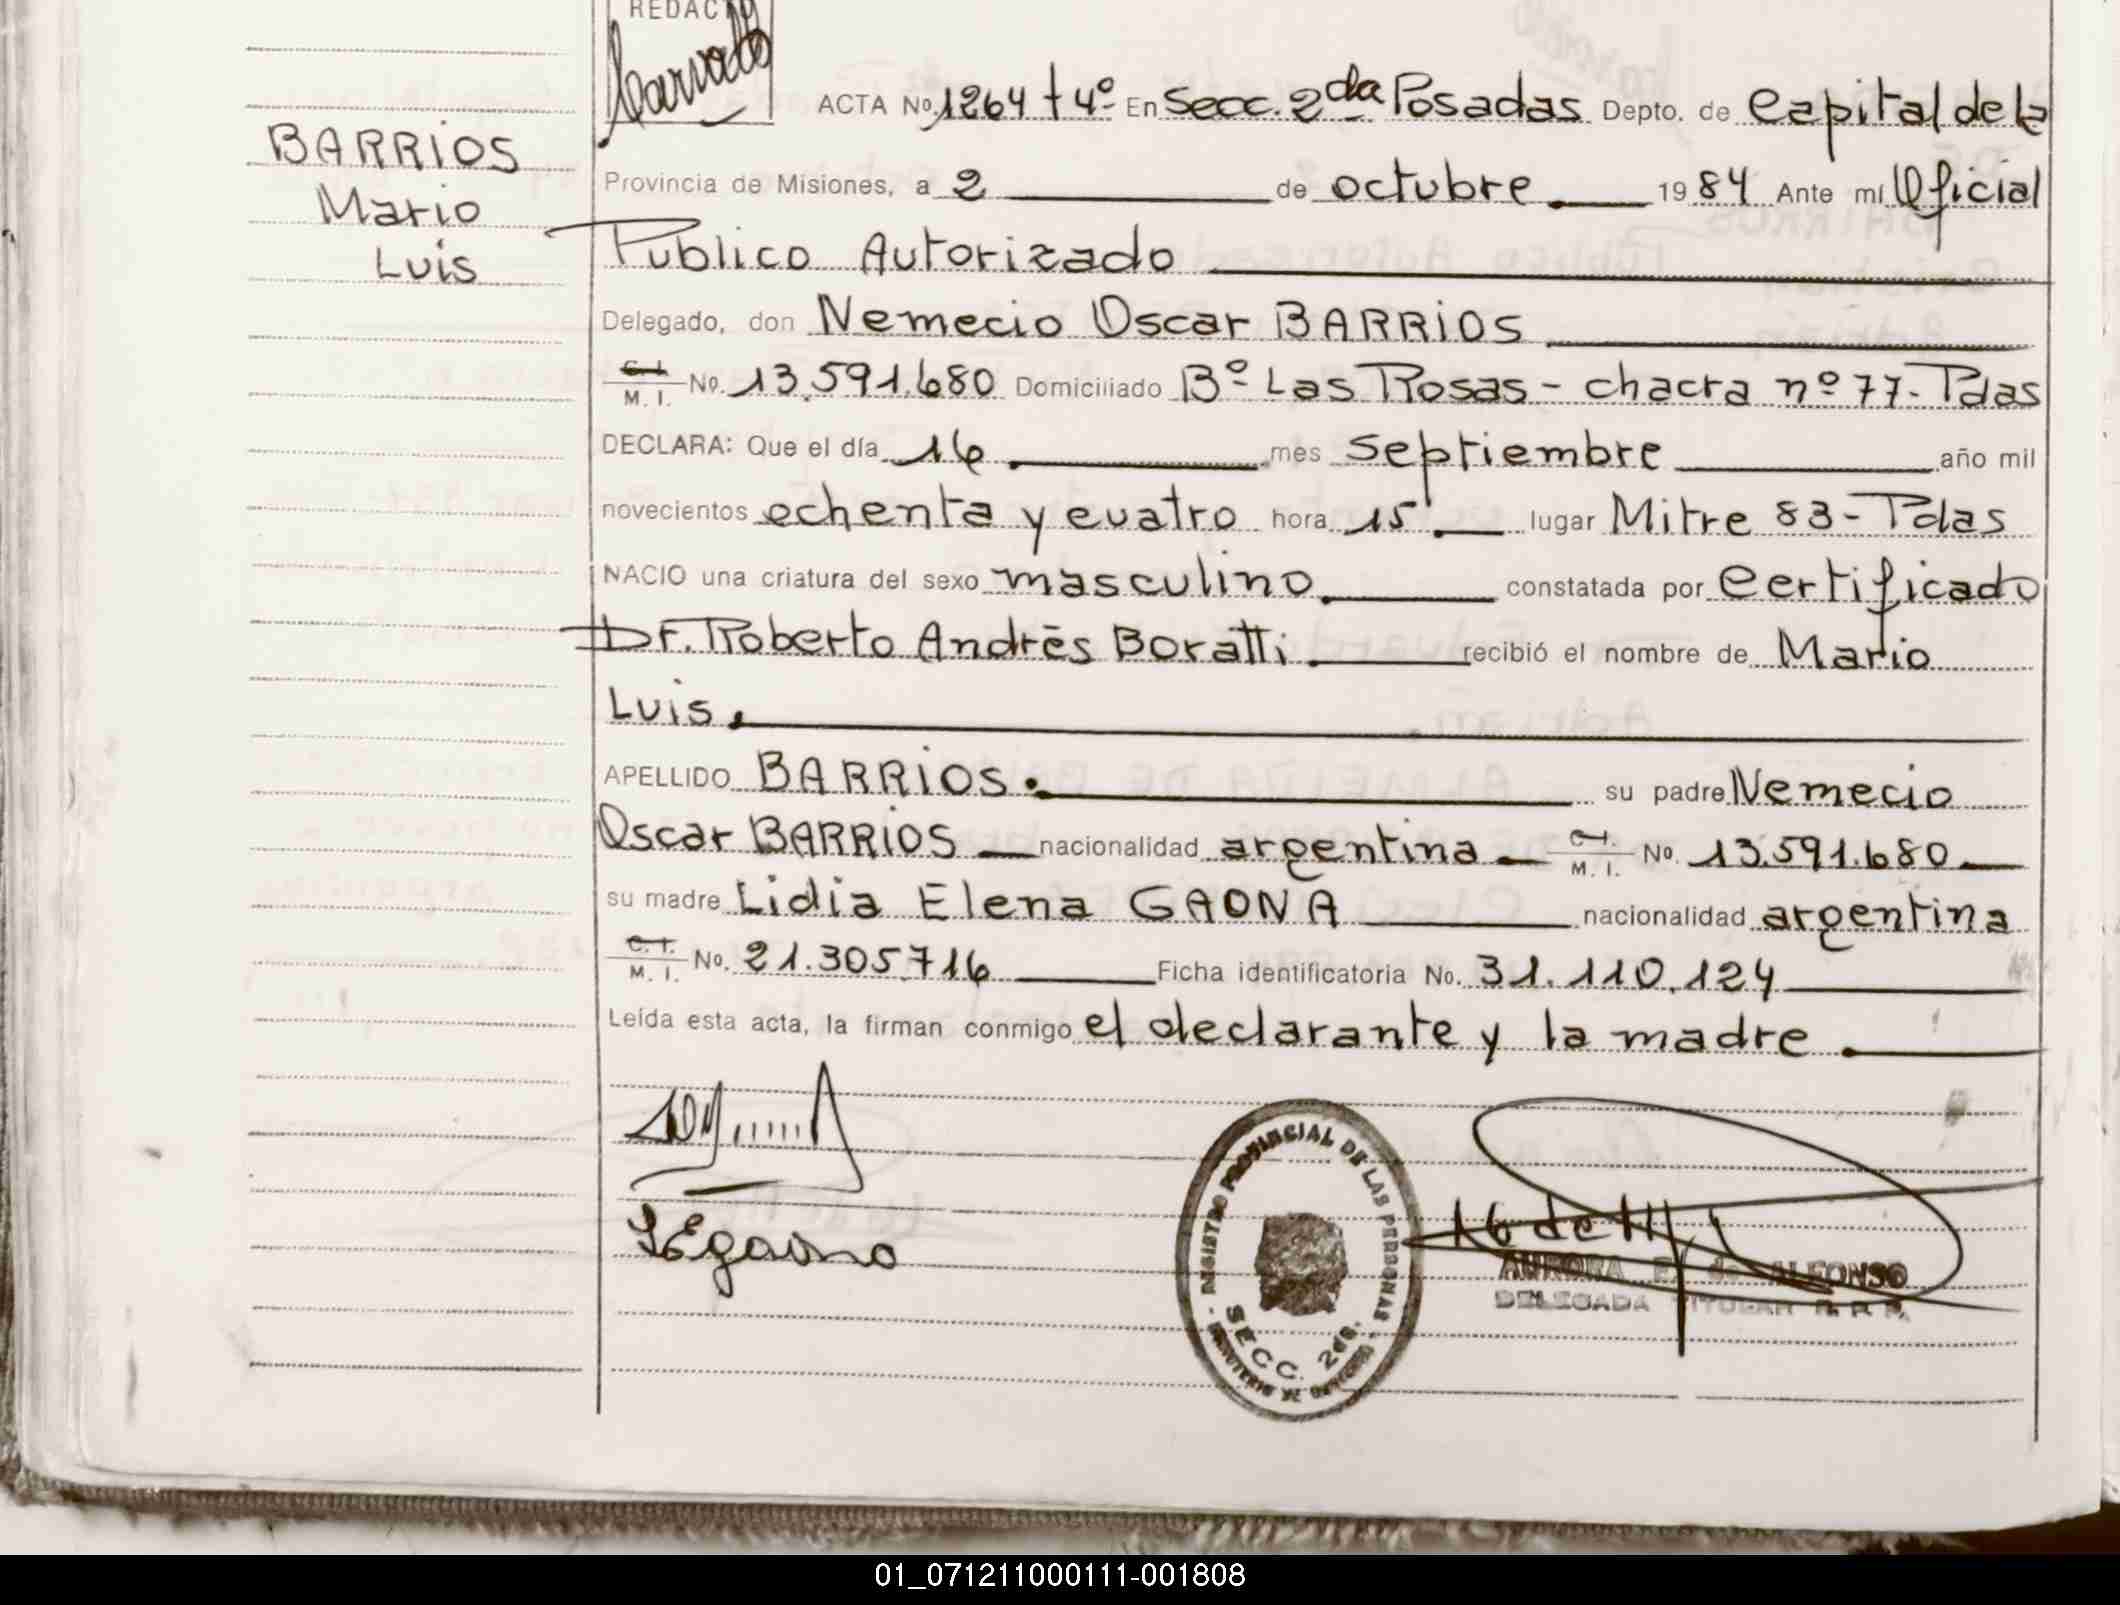 REDACTO
BARRIOS
Mario
Luis
ACTA No. 1264 t 4º En Secc. 2da Posadas Depto. de Capital de la
Provincia de Misiones, a 2 de octubre 1984 Ante mí Oficial
Publico Autorizado
Delegado, don Nemecio Oscar BARRIOS
C. I. / M. I. No. 13.591.680 Domiciliado Bº Las Rosas - chacra nº 77 - Pdas
DECLARA: Que el día 16 mes septiembre año mil
novecientos ochenta y cuatro hora 15 lugar Mitre 83 - Pdas
NACIO una criatura del sexo masculino constatada por Certificado
Dr. Roberto Andrés Boratti recibió el nombre de Mario
Luis.
APELLIDO BARRIOS. su padre Nemecio
Oscar BARRIOS nacionalidad argentina C. I. / M. I. No. 13.591.680
su madre Lidia Elena GAONA nacionalidad argentina
C. I. / M. I. No. 21.305.716 Ficha identificatoria No. 31.110.124
Leída esta acta, la firman conmigo el declarante y la madre.
LEgaona
REGISTRO PROVINCIAL DE LAS PERSONAS
SECC. 2da.
MINISTERIO DE GOBIERNO
AURORA de ALFONSO
DELEGADA TITULAR R. P. P.
01_071211000111-001808